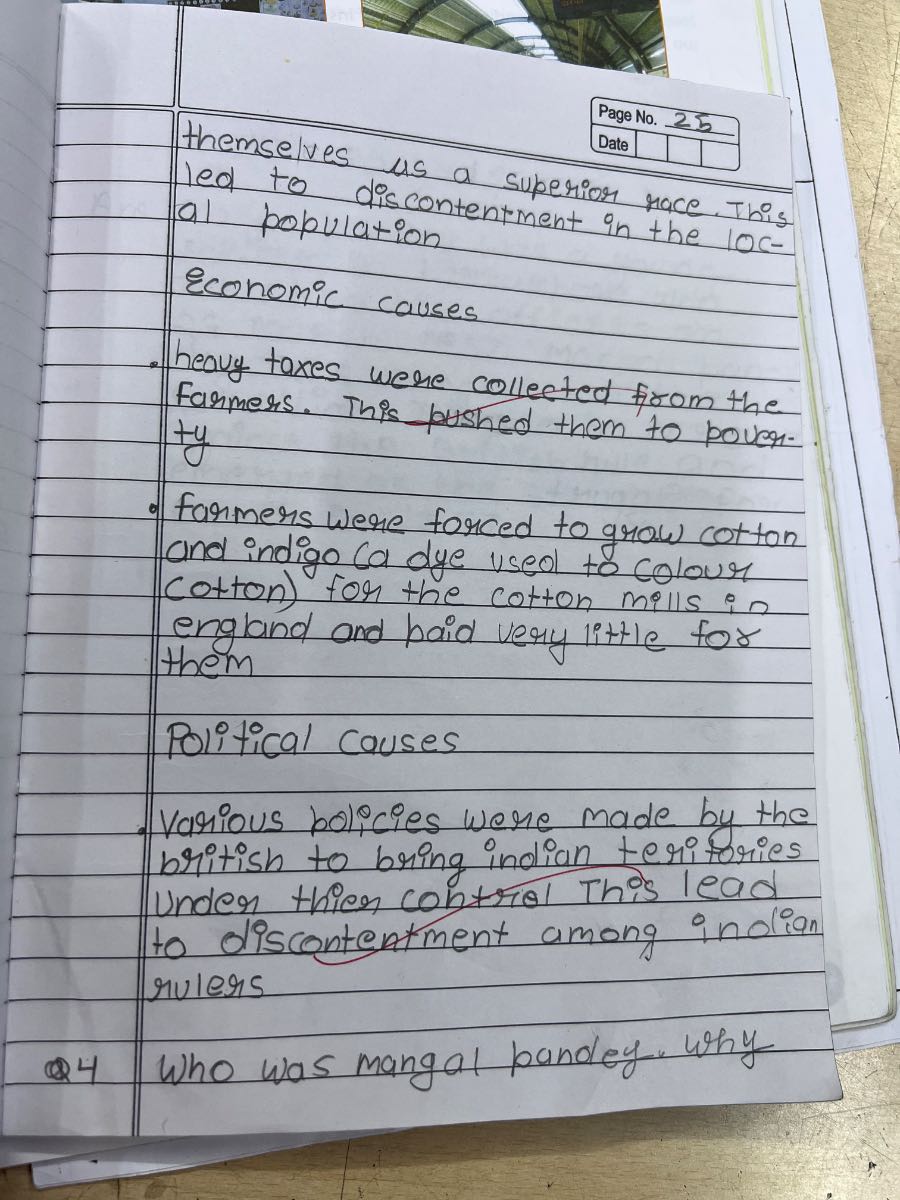 Page No. 25
Date
themselves us a superior race. This
led to discontentment in the loc-
al population
Economic causes
heavy taxes were collected from the
farmers. This pushed them to pover-
ty
farmers were forced to grow cotton
and indigo (a dye used to colour
cotton) for the cotton mills in
england and paid very little for
them
Political causes
Various policies were made by the
british to bring indian teritories
under thier control This lead
to discontentment among indian
rulers
Q4 Who was mangal pandey. why